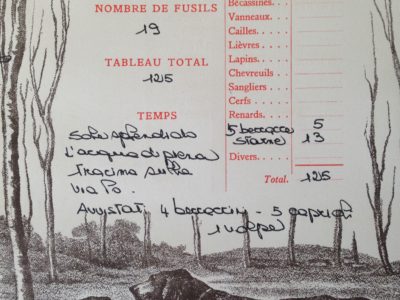 NOMBRE DE FUSILS
19
TABLEAU TOTAL
125
TEMPS
Sole splendido
L'acqua di piena
tracima sulla
via Po.
Bécassines.
Vanneaux.
Cailles.
Lièvres.
Lapins.
Chevreuils
Sangliers
Cerfs
Renards.
5 beccacce 5
starne 13
Divers.
Total. 125
Avvistati 4 beccaccini - 5 caprioli
1 volpe